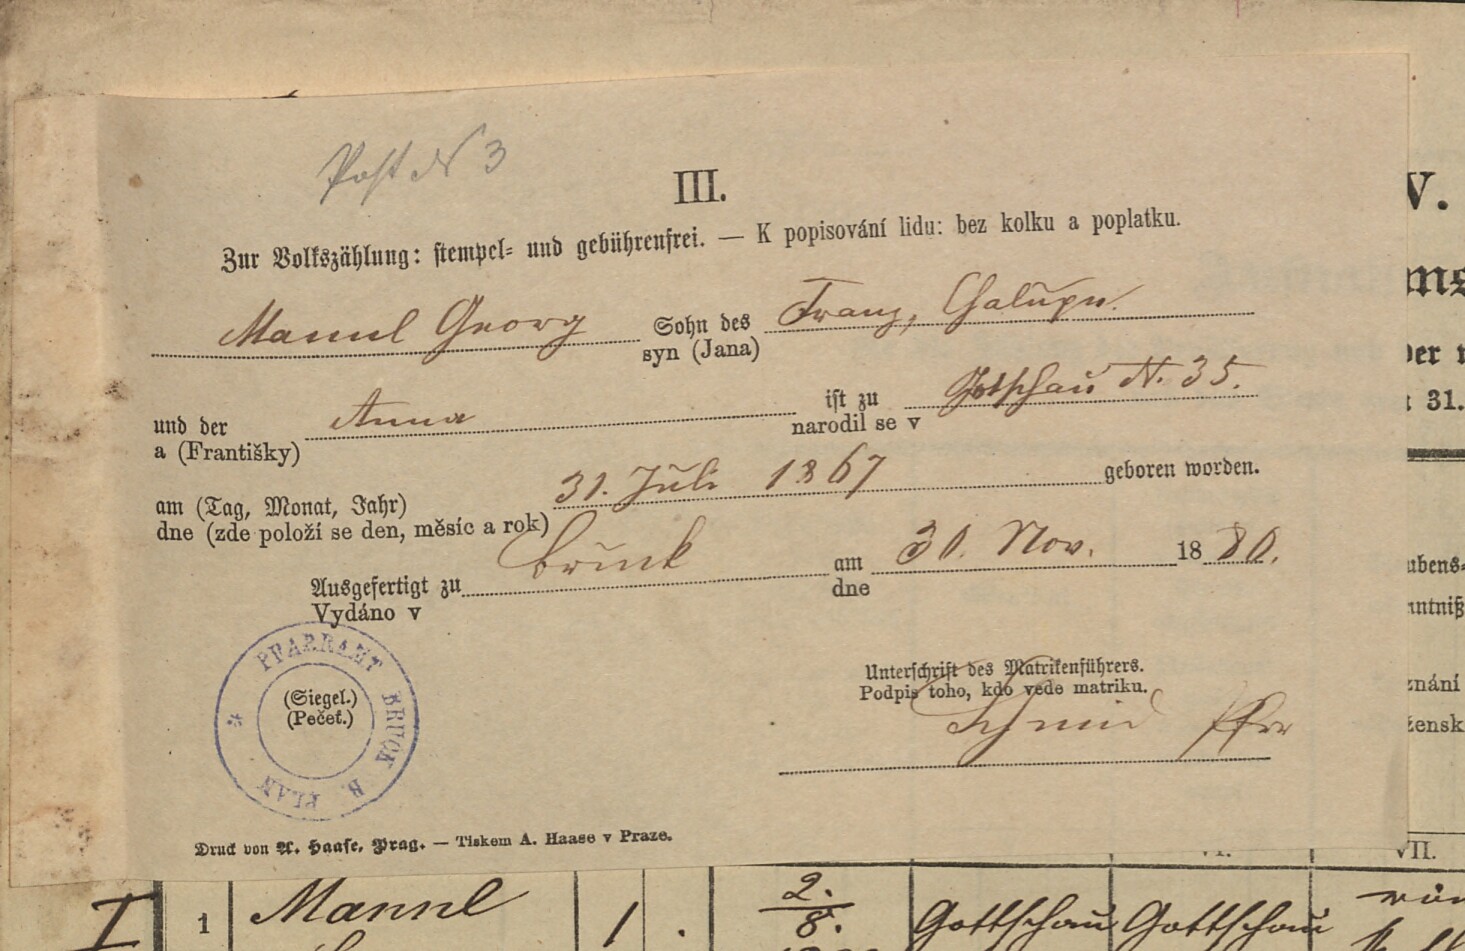 Post N 3
III.
V.
Zur Volkszählung: stempel= und gebührenfrei. — K popisování lidu: bez kolku a poplatku.
Mannl Georg Sohn des Franz, Chalupn.
syn (Jana)
und der Anna ist zu Gotschau N. 35.
a (Františky) narodil se v
31.
am (Tag, Monat, Jahr) 31. Juli 1867 geboren worden.
dne (zde položí se den, měsíc a rok)
Ausgefertigt zu Bruck am 30. Nov. 1880.
Vydáno v dne
PFARRAMT BRUCK B. PLAN
(Siegel.)
(Pečeť.)
Unterschrift des Matrikenführers.
Podpis toho, kdo vede matriku.
Schmid Pfr
Druck von A. Haase, Prag. — Tiskem A. Haase v Praze.
VI. VII.
I 1 Mannl 1 . 2./8. Gottschau Gottschau